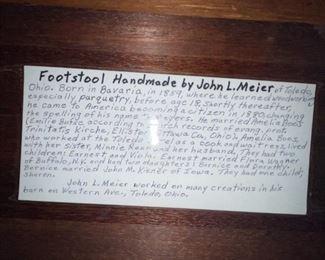 Footstool Handmade by John L. Meier of Toledo,
Ohio. Born in Bavaria, in 1859, where he learned woodworking
especially parquetry, before age 18, shortly thereafter,
he came to America becoming a citizen in 1880, changing
the spelling of his name to Meyers. He married Amelia Boos
(Emilie Buhse according to church records of evang. prot
Trinitatis Kirche, Elliston, Ottawa Co, Ohio). Amelia Boos
worked at the Toledo as a cook and waitress, lived
with her sister, Minnie and her husband. They had two
children: Earnest and Viola. Earnest married Flora Wagner
of Buffalo, N.Y. and had two daughters: Bernice and Dorothy.
Bernice married John M. of Iowa. They had one child,
John L. Meier worked on many creations in his
barn on Western Ave., Toledo, Ohio.